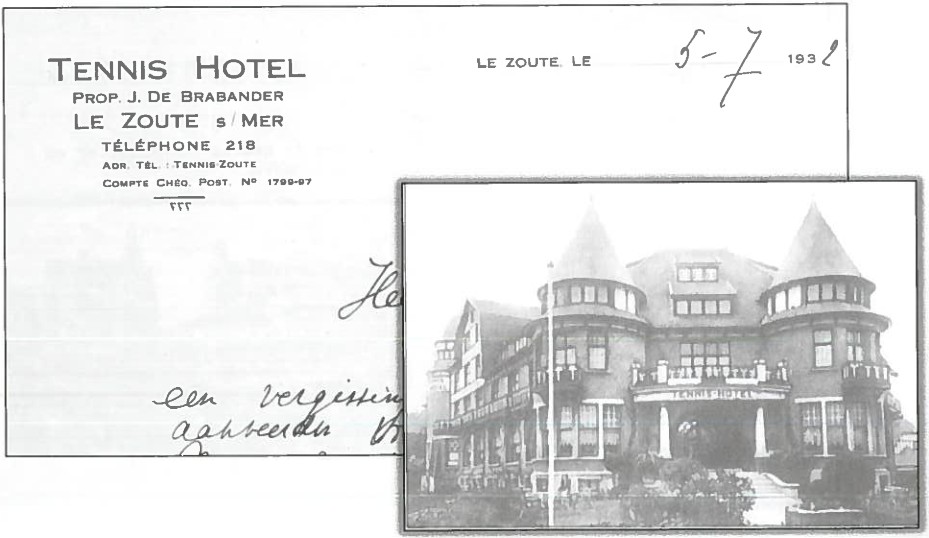 TENNIS HOTEL
PROP. J. DE BRABANDER
LE ZOUTE S/MER
TÉLÉPHONE 218
ADR. TÉL. : TENNIS-ZOUTE
COMPTE CHÈQ. POST. Nº 1799-97
LE ZOUTE, LE 5-7 1932
He
een vergissin
aanveerden
TENNIS-HOTEL